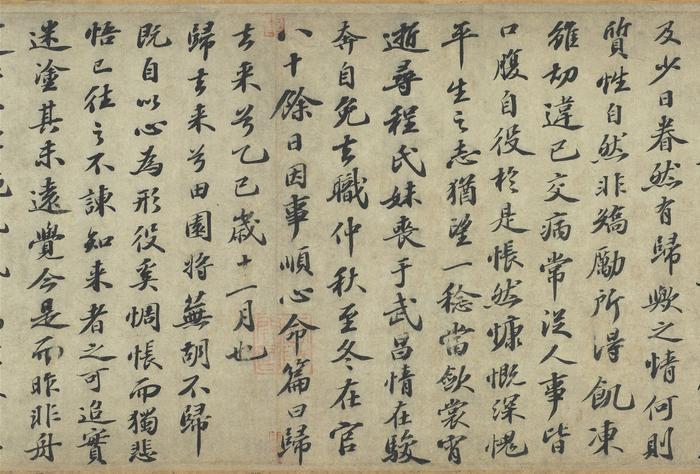 及少日眷然有歸歟之情何則
質性自然非矯勵所得飢凍
雖切違己交病常從人事皆
口腹自役於是悵然慷慨深愧
平生之志猶望一稔當斂裳宵
逝尋程氏妹喪于武昌情在駿
奔自免去職仲秋至冬在官
八十餘日因事順心命篇曰歸
去来兮乙巳歲十一月也
歸去来兮田園將蕪胡不歸
既自以心為形役奚惆悵而獨悲
悟已往之不諫知来者之可追實
迷塗其未遠覺今是而昨非舟